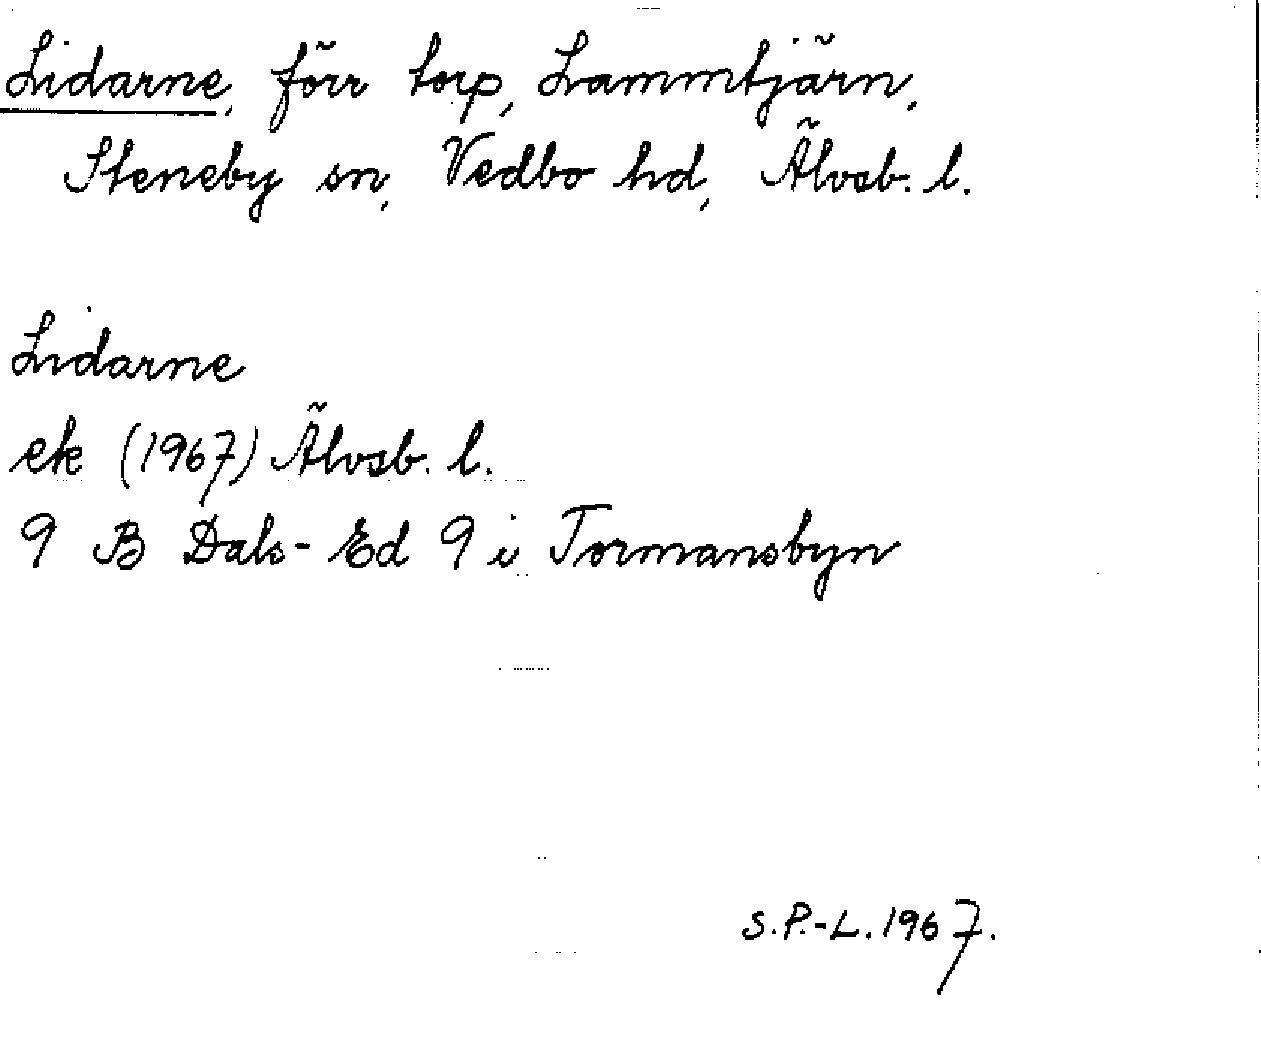 Lidarne, förr torp, Lammtjärn,
Steneby sn, Vedbo hd, Älvsb. l.
Lidarne
ek (1967) Älvsb. l.
9 B Dals-Ed 9 i Tormansbyn
S.P.-L. 1967.